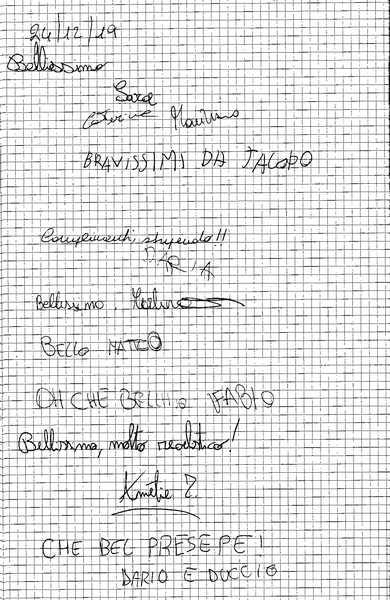 24/12/19
Bellissimo
Sara
Maurizio
BRAVISSIMI DA JACOPO
Complimenti, stupendo!!
DARIA
Bellissimo.
BELLO MATTEO
OH CHE BELLINO FABIO
Bellissimo, molto realistico!
CHE BEL PRESEPE!
DARIO E DUCCIO